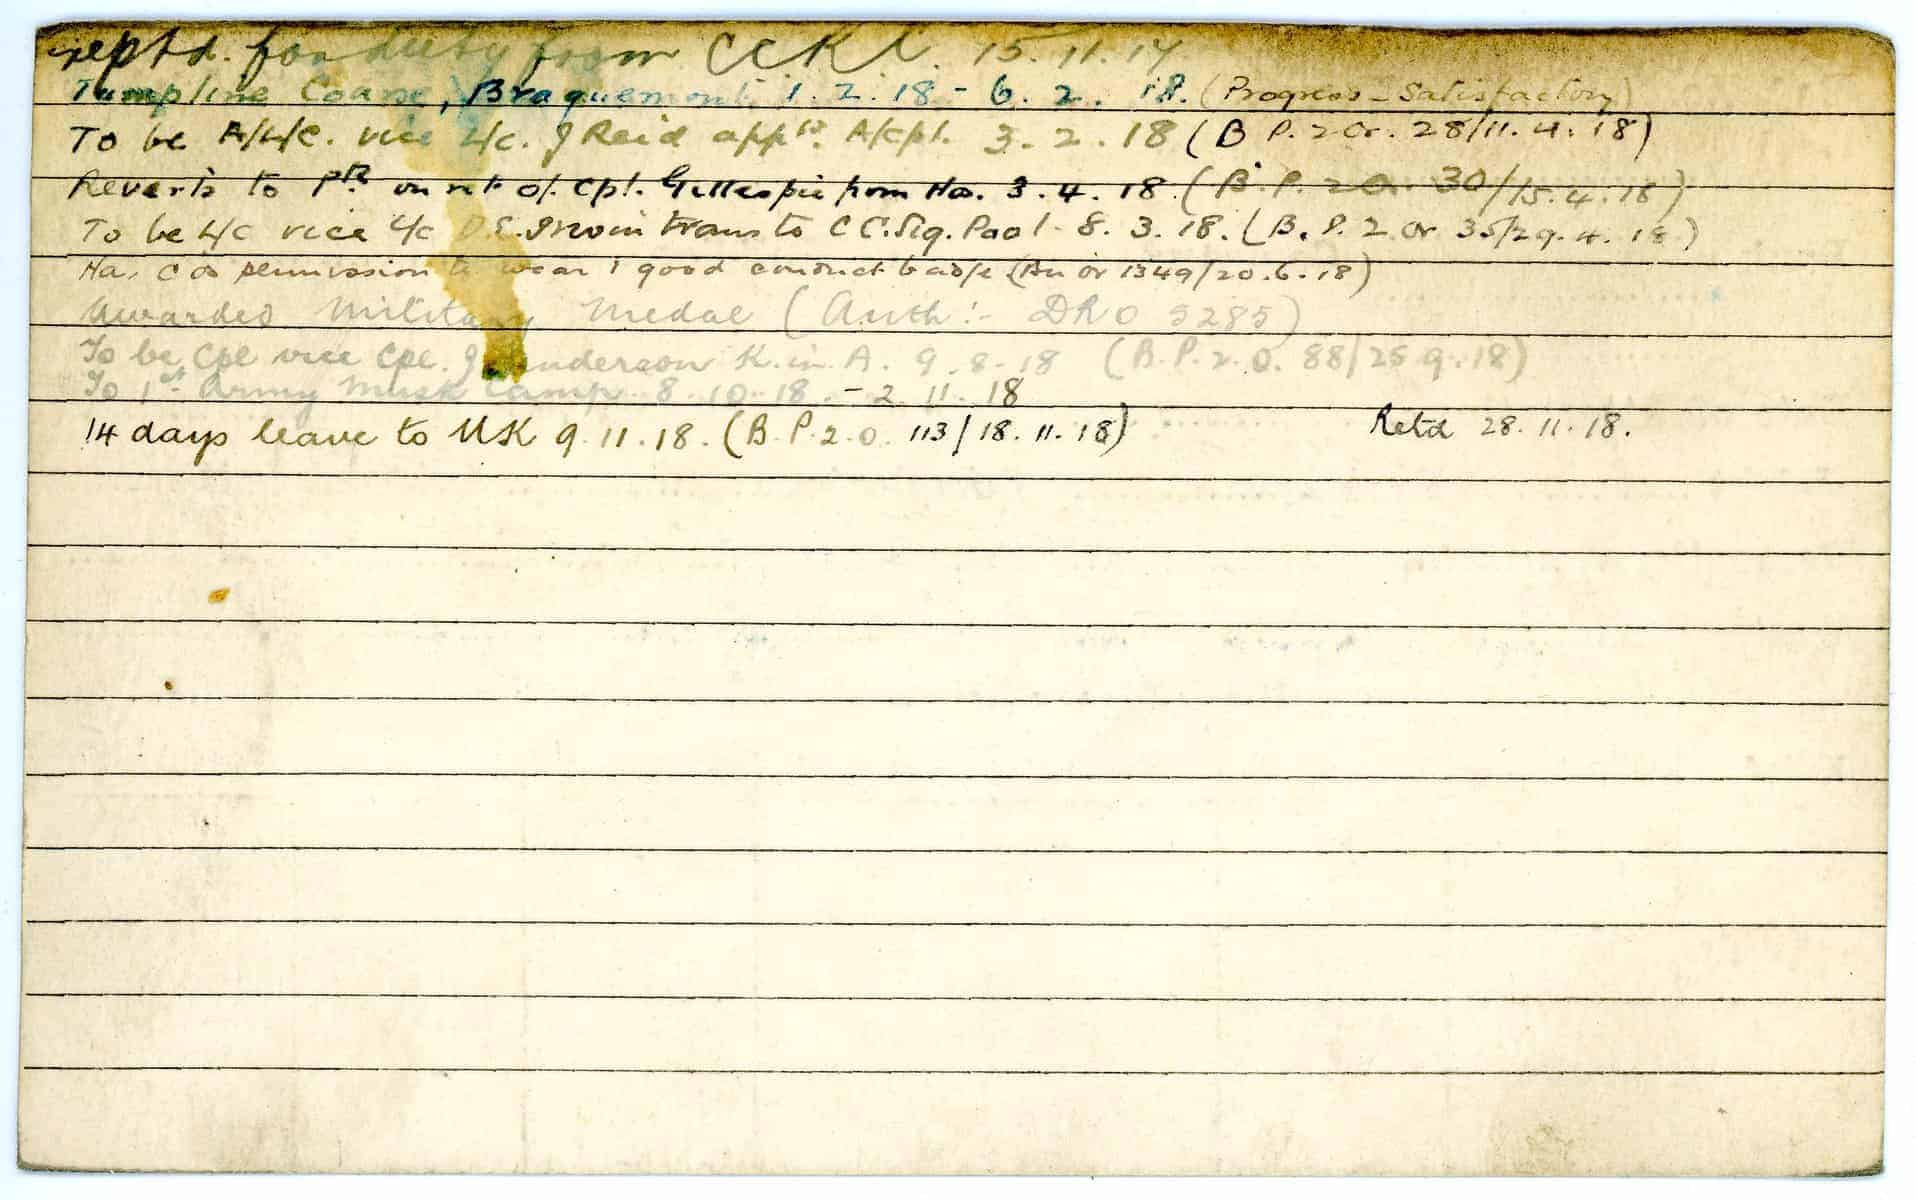 reptd. for duty from CCRC. 15.11.17
Tumpline Course, Braquemont 1.2.18 - 6.2.18. (Progress - Satisfactory)
To be A/L/C. vice L/c. J Reid apptd. A/Cpl. 3.2.18 (B P. 2 Or. 28/11.4.18)
Reverts to Pte on ret. of. Cpl. Gillespie from Ho. 3.4.18. (B.P. 2 O. 30/15.4.18)
To be L/C vice L/c D.E. Irwin trans to C C. Sig. Pool - 8.3.18. (B.P. 2 Or 35/29.4.18)
Has C Os permission to wear 1 good conduct badge (Bn Or 1349/20.6.18)
Awarded Military Medal (Auth:- DRO 5285)
To be Cpl vice Cpl. J. Anderson K. in. A. 9.8.18 (B.P.2.O. 88/25.9.18)
To 1st Army Musk Camp 8.10.18 - 2.11.18
14 days leave to UK 9.11.18. (B.P.2.O. 113/18.11.18) Retd 28.11.18.